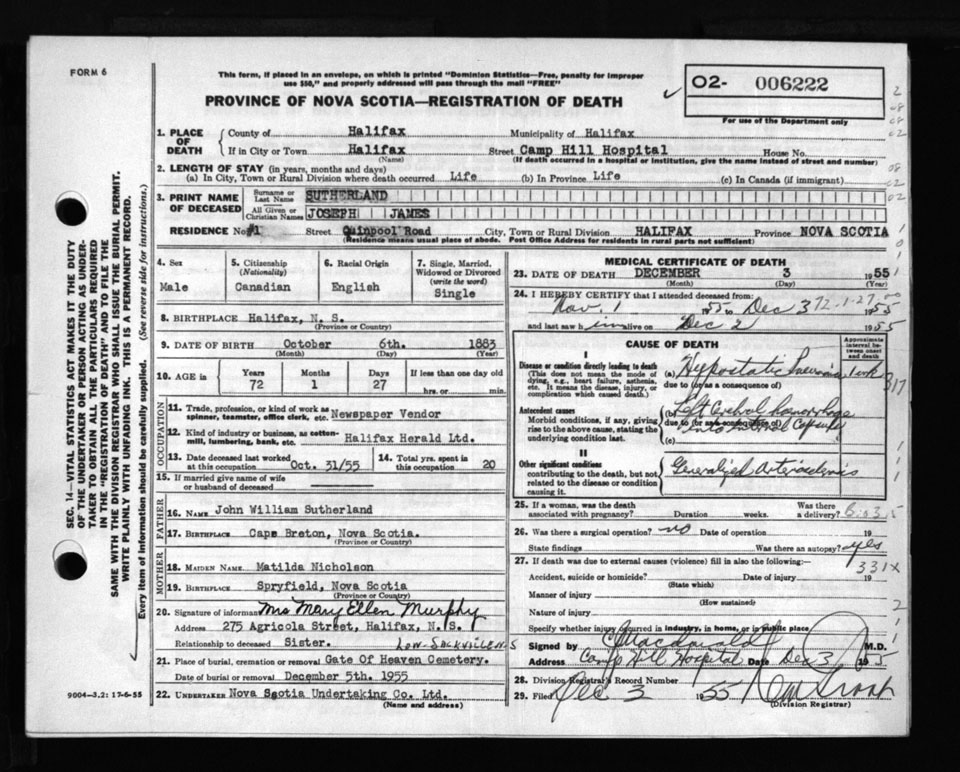 FORM 6
This form, if placed in an envelope, on which is printed "Dominion Statistics—Free, penalty for improper
use $50," and properly addressed will pass through the mail "FREE"
PROVINCE OF NOVA SCOTIA—REGISTRATION OF DEATH
02- 006222
For use of the Department only
1. PLACE OF DEATH
County of Halifax Municipality of Halifax
If in City or Town Halifax Street Camp Hill Hospital House No.
(Name) (If death occurred in a hospital or institution, give the name instead of street and number)
2. LENGTH OF STAY (in years, months and days)
(a) In City, Town or Rural Division where death occurred Life (b) In Province Life (c) In Canada (if immigrant)
3. PRINT NAME OF DECEASED
Surname or Last Name SUTHERLAND
All Given or Christian Names JOSEPH JAMES
RESIDENCE No #1 Street Quinpool Road City, Town or Rural Division HALIFAX Province NOVA SCOTIA
(Residence means usual place of abode. Post Office Address for residents in rural parts not sufficient)
4. Sex
Male
5. Citizenship
(Nationality)
Canadian
6. Racial Origin
English
7. Single, Married, Widowed or Divorced
(write the word)
Single
8. BIRTHPLACE Halifax, N. S.
(Province or Country)
9. DATE OF BIRTH October 6th. 1883
(Month) (Day) (Year)
10. AGE in
Years Months Days If less than one day old
72 1 27 hrs. or min.
OCCUPATION
11. Trade, profession, or kind of work as spinner, teamster, office clerk, etc. Newspaper Vendor
12. Kind of industry or business, as cotton-mill, lumbering, bank, etc. Halifax Herald Ltd.
13. Date deceased last worked at this occupation Oct. 31/55
14. Total yrs. spent in this occupation 20
15. If married give name of wife or husband of deceased
FATHER
16. NAME John William Sutherland
17. BIRTHPLACE Cape Breton, Nova Scotia.
(Province or Country)
MOTHER
18. MAIDEN NAME Matilda Nicholson
19. BIRTHPLACE Spryfield, Nova Scotia
(Province or Country)
20. Signature of informant Mrs Mary Ellen Murphy
Address 275 Agricola Street, Halifax, N. S.
Relationship to deceased Sister.
Low-Sackville N.S
21. Place of burial, cremation or removal Gate Of Heaven Cemetery.
Date of burial or removal December 5th. 1955
22. UNDERTAKER Nova Scotia Undertaking Co. Ltd.
(Name and address)
9004—3.2: 17-6-55
MEDICAL CERTIFICATE OF DEATH
23. DATE OF DEATH DECEMBER 3 1955
(Month) (Day) (Year)
24. I HEREBY CERTIFY that I attended deceased from:
Nov. 1 1955 to Dec 3 1955
72-1-27
and last saw him alive on Dec 2 1955
CAUSE OF DEATH
Approximate interval between onset and death
I
Disease or condition directly leading to death
(This does not mean the mode of dying, e.g., heart failure, asthenia, etc. It means the disease, injury, or complication which caused death.)
(a) Hypostatic Pneumonia 1 wk
due to (or as a consequence of)
Antecedent causes
Morbid conditions, if any, giving rise to the above cause, stating the underlying condition last.
(b) Left Cerebral hemorrhage
due to (or as a consequence of)
into internal Capsule
(c)
II
Other significant conditions
contributing to the death, but not related to the disease or condition causing it.
Generalized Arteriosclerosis
25. If a woman, was the death associated with pregnancy? Duration weeks. Was there a delivery?
26. Was there a surgical operation? no Date of operation
State findings Was there an autopsy? yes
27. If death was due to external causes (violence) fill in also the following:—
331X
Accident, suicide or homicide? Date of injury 19
(State which)
Manner of injury
(How sustained)
Nature of injury
Specify whether injury occurred in industry, in home, or in public place
Signed by Macdonald M.D.
Address Camp Hill Hospital Date Dec 3
28. Division Registrar's Record Number
29. Filed Dec 3 1955
(Division Registrar)
SEC. 14—VITAL STATISTICS ACT MAKES IT THE DUTY
OF THE UNDERTAKER OR PERSON ACTING AS UNDER-
TAKER TO OBTAIN ALL THE PARTICULARS REQUIRED
IN THE "REGISTRATION OF DEATH" AND TO FILE THE
SAME WITH THE DIVISION REGISTRAR WHO SHALL ISSUE THE BURIAL PERMIT.
WRITE PLAINLY WITH UNFADING INK. THIS IS A PERMANENT RECORD.
Every item of information should be carefully supplied. (See reverse side for instructions.)